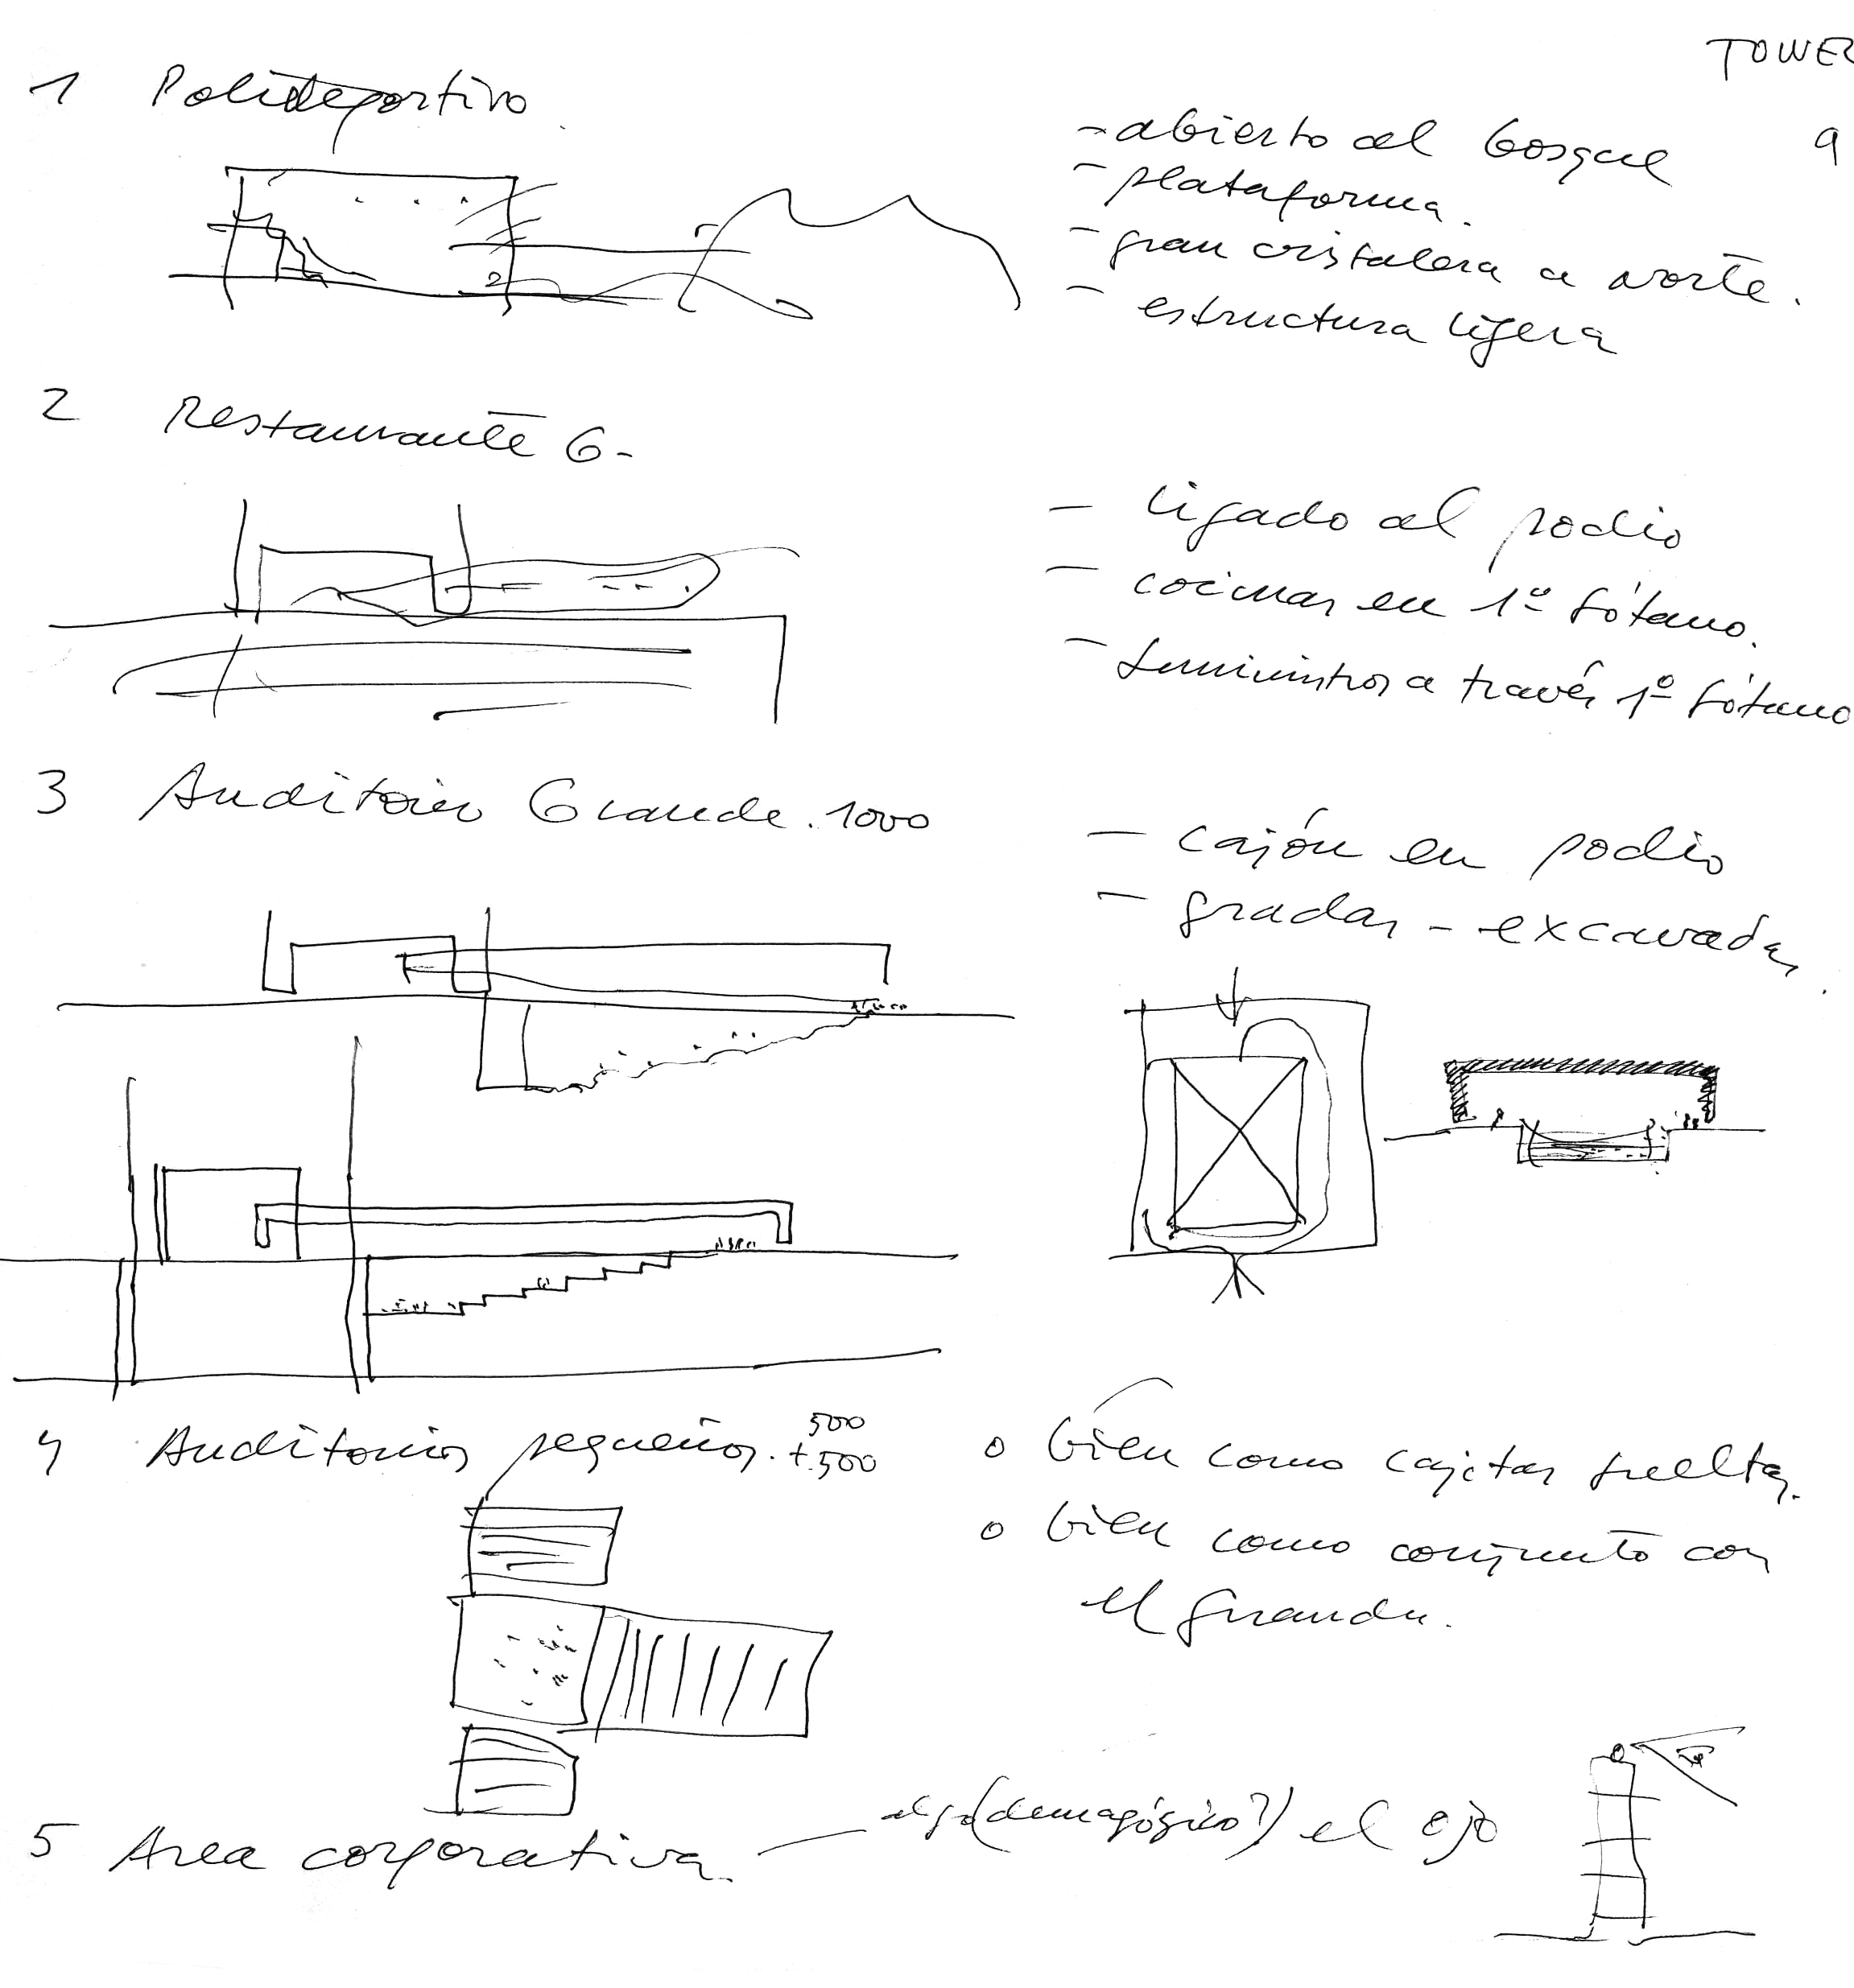 TOWER
9
1 Polideportivo.
- abierto al bosque
- plataforma.
- gran cristalera a norte.
- estructura ligera
2
2 Restaurante G.
- ligado al podio
- cocinas en 1º sótano.
- suministros a través 1º sótano
3 Auditorio Grande. 1000
- cajón en podio
- gradas - excavadas.
4 Auditorios pequeños. 500
+ 500
o bien como cajitas sueltas.
o bien como conjunto con
el grande.
5 Area corporativa. — algo (demagógico?) el ojo